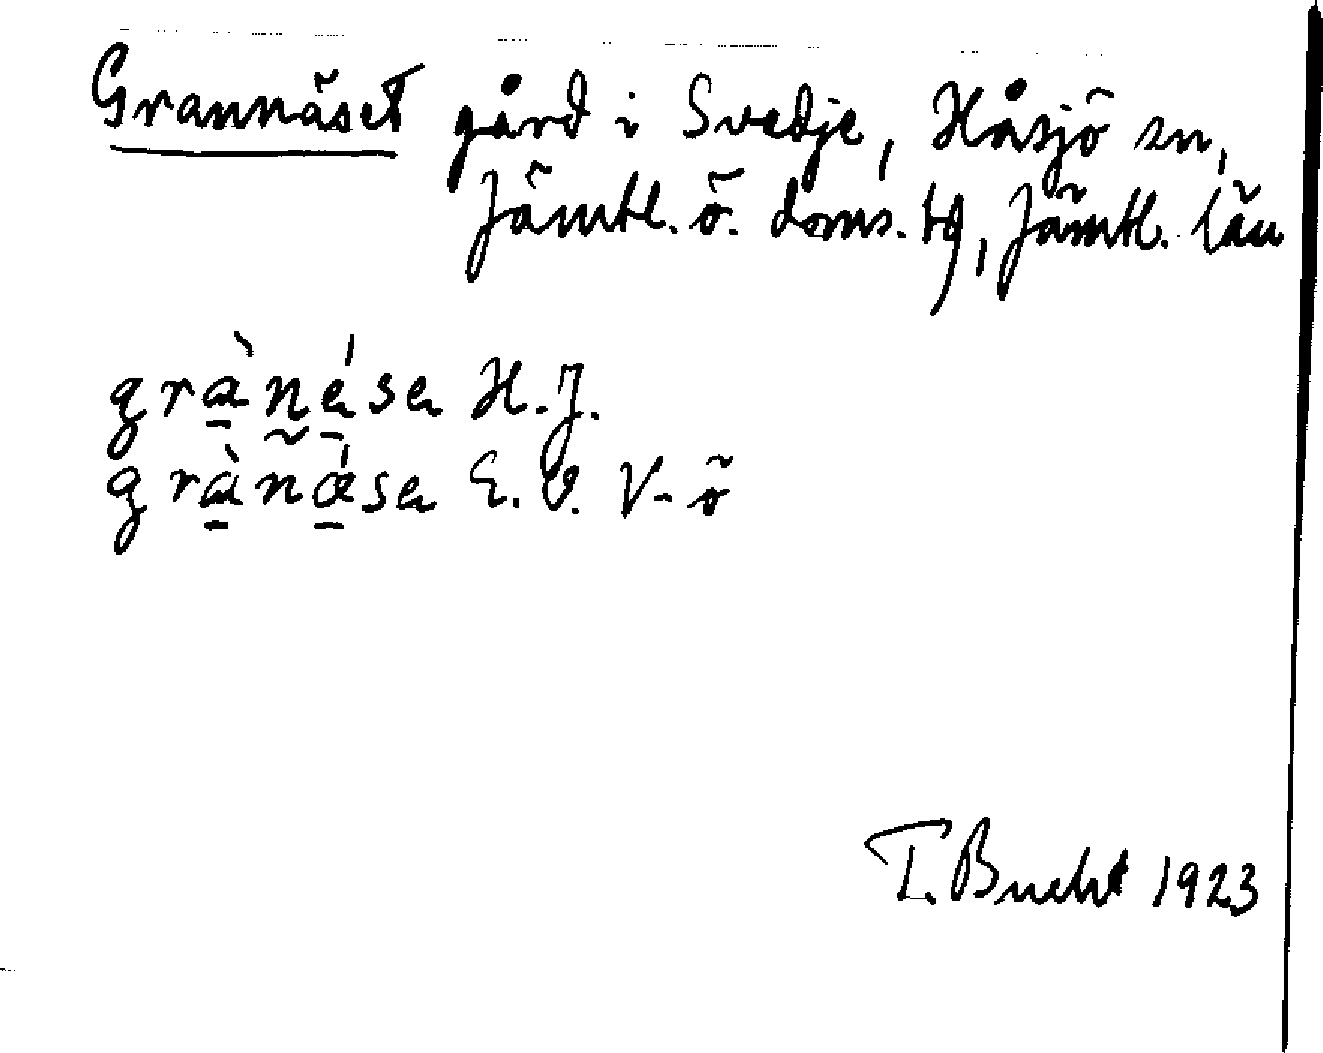 Grannäset gård i Svedje, Håsjö sn,
Jämtl. ö. doms. tg, Jämtl. län
grànésa H.J.
grànǽsa E.O. V-ö
T. Bucht 1923